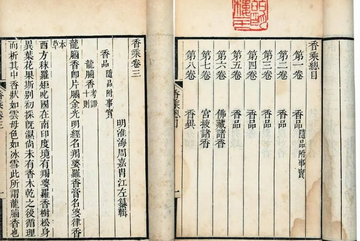 香乘總目
第一卷 香品隨品附事實
第二卷 香品
第三卷 香品
第四卷 香品
第五卷 香品
第六卷 佛藏諸香
第七卷 宮掖諸香
第八卷 香異
香乘卷三
明淮海周嘉胄江左纂輯
香品隨品附事實
龍腦香考證 則
龍腦香即片腦金光明經名羯婆羅香膏名婆律香
本草
西方秣羅矩吒國在南印度境有羯婆羅香樹松身
異葉花果斯別初採既濕尚未有香木乾之後循理
而析其中香狀如雲母色如冰雪此所謂龍腦香也